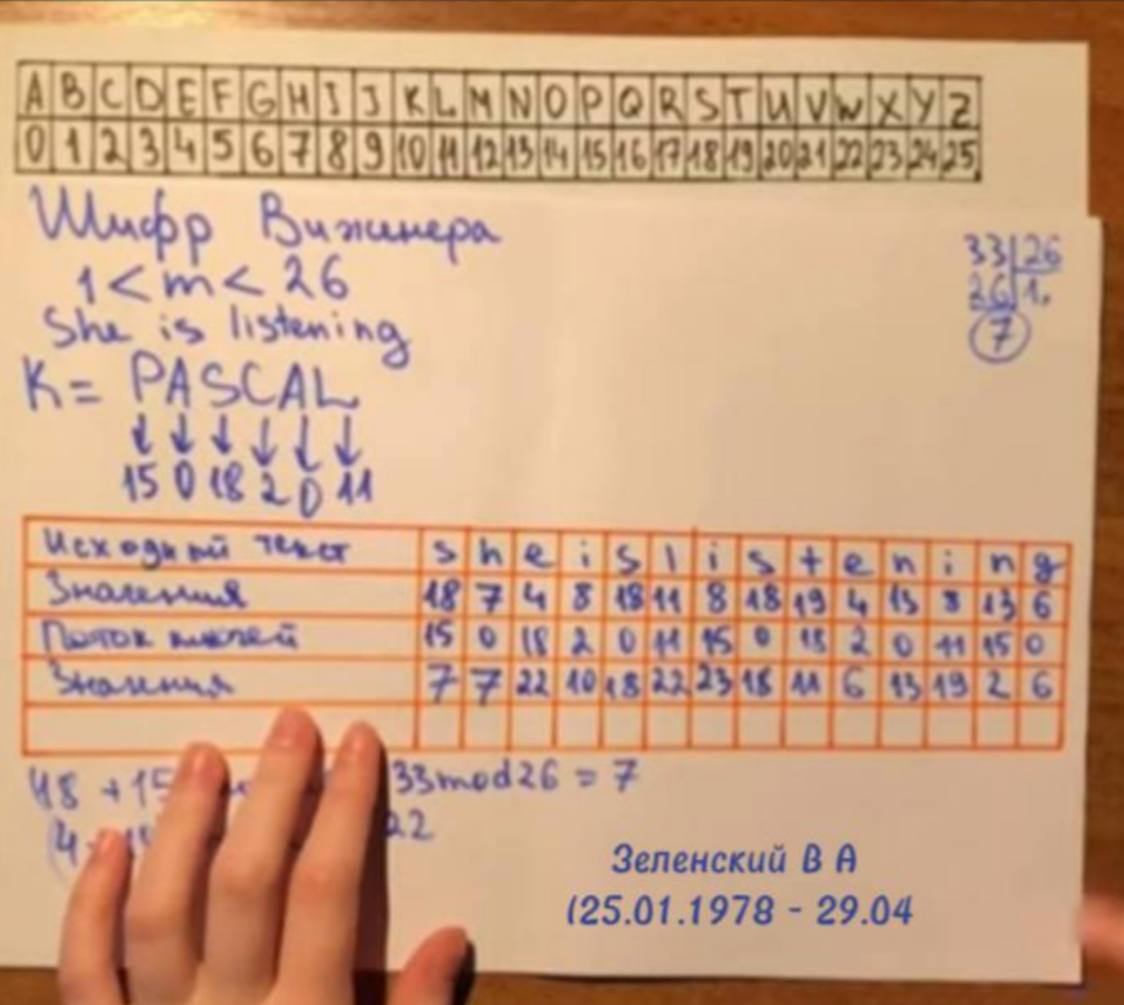 A B C D E F G H I J K L M N O P Q R S T U V W X Y Z
0 1 2 3 4 5 6 7 8 9 10 11 12 13 14 15 16 17 18 19 20 21 22 23 24 25
Шифр Вижинера
1 < m < 26
She is listening
K = PASCAL
15 0 18 2 0 11
33 26
26 1.
7
Исходный текст s h e i s l i s t e n i n g
Значения 18 7 4 8 18 11 8 18 19 4 13 8 13 6
Поток ключей 15 0 18 2 0 11 15 0 18 2 0 11 15 0
Значения 7 7 22 10 18 22 23 18 11 6 13 19 2 6
18 + 15 33mod26 = 7
(4 22
Зеленский В А
(25.01.1978 - 29.04